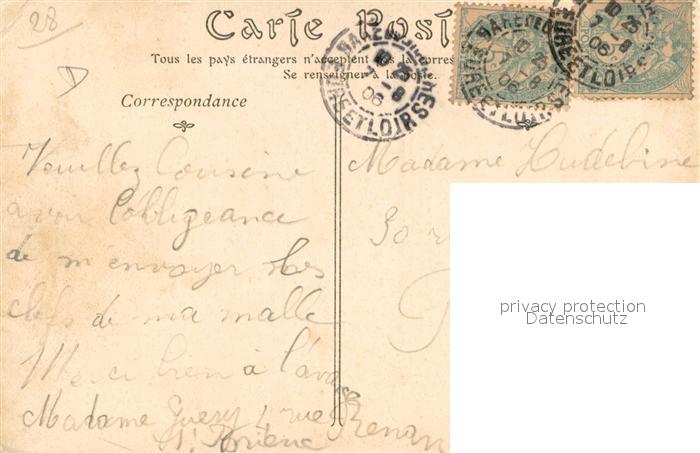 28
Carte Postale
Tous les pays étrangers n'acceptent pas la corres
Se renseigner à la poste.
Correspondance
Veuillez Cousine
avoir l'obligeance
de m'envoyer les
clefs de ma malle
Merci bien à l'avance
Madame Guery 4 rue Renan
St Brieuc
Madame Hudebine
30 r
privacy protection
Datenschutz